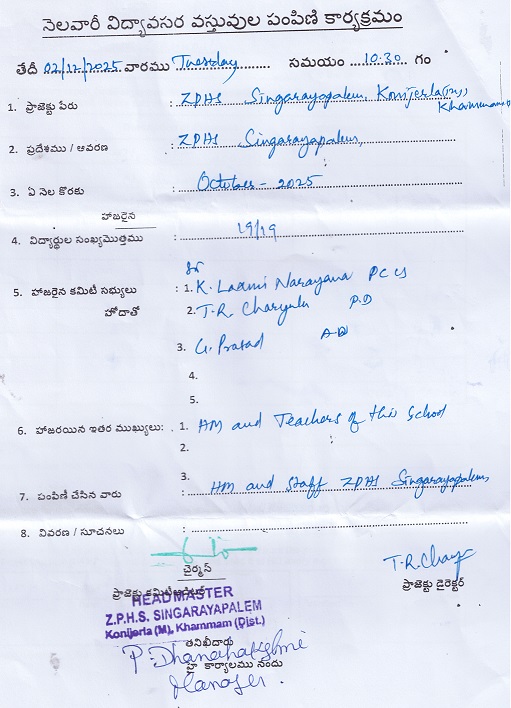 నెలవారీ విద్యావసర వస్తువుల పంపిణి కార్యక్రమం
తేదీ 02/12/2025 వారము Tuesday సమయం ...10:30 గం
1. ప్రాజెక్టు పేరు : ZPHS Singarayapalem, Konijerla(m), Khammam
2. ప్రదేశము / ఆవరణ : ZPHS Singarayapalem,
3. ఏ నెల కొరకు : October - 2025
హాజరైన
4. విద్యార్థుల సంఖ్యమొత్తము : 19/19
5. హాజరైన కమిటీ సభ్యులు : 1. K. Laxmi Narayana PCCS
హోదాతో 2. T.R. Charyulu P.D
3. G. Prasad AD
4.
5.
6. హాజరయిన ఇతర ముఖ్యులు: 1. HM and Teachers of this School
2.
3.
7. పంపిణీ చేసిన వారు : HM and Staff ZPHS Singarayapalem,
8. వివరణ / సూచనలు :
చైర్మన్
T.R. Chary
ప్రాజెక్టు డైరెక్టర్
HEAD MASTER
Z.P.H.S. SINGARAYAPALEM
Konijerla (M), Khammam (Dist.)
తనిఖీదారు
P. Dhanalakshmi
హై కార్యాలము నందు
Manager.